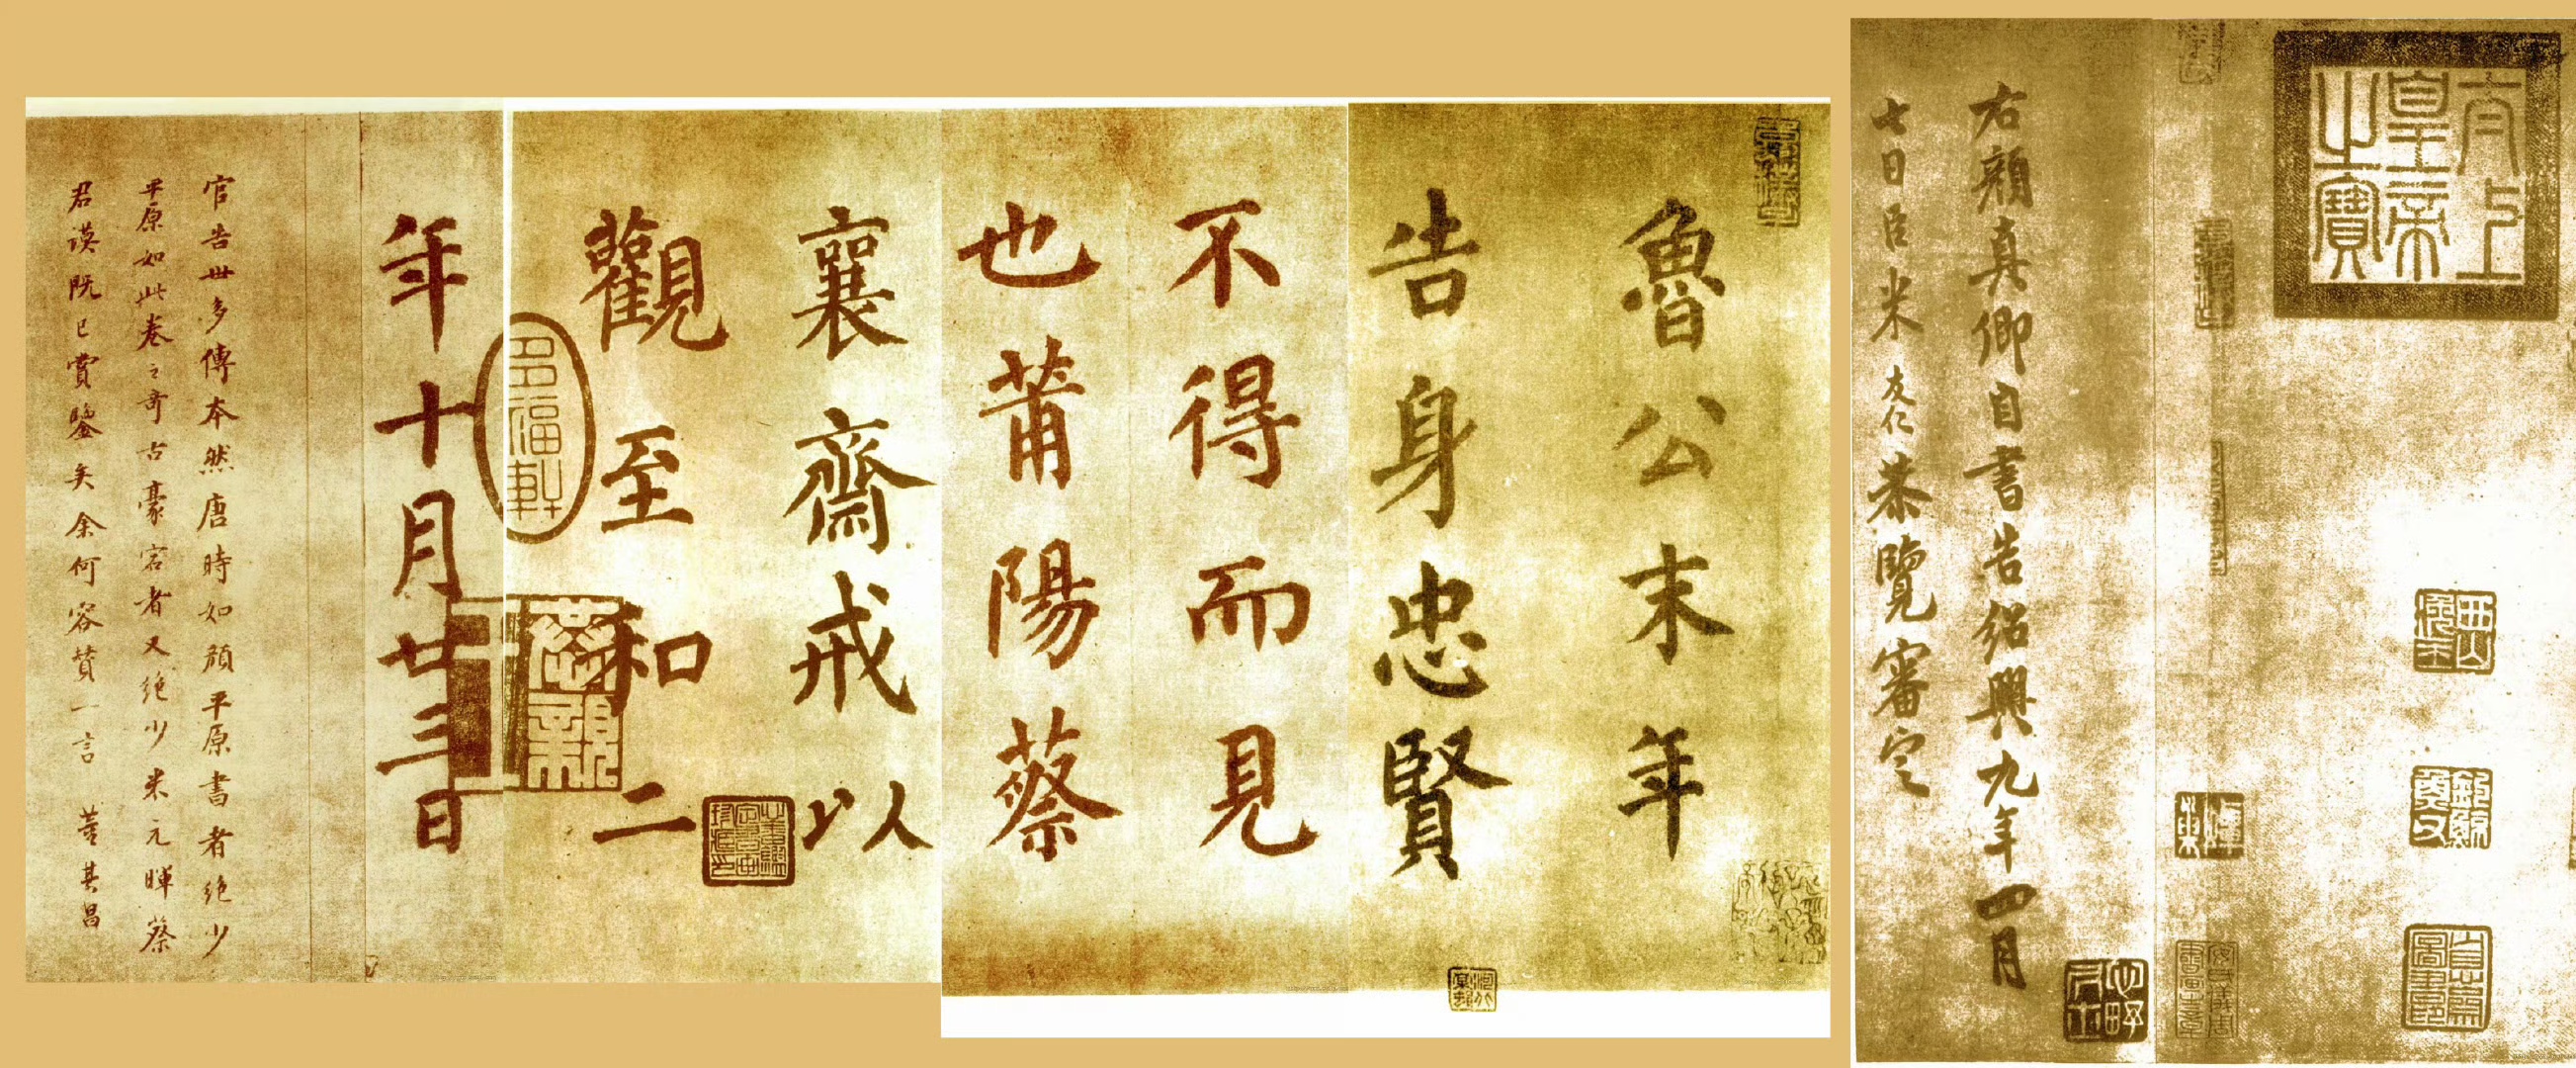 太上
皇帝
之寶
右顏真卿自書告紹興九年四月
七日臣米友仁恭覽審定
魯公末年
告身忠賢
不得而見
也莆陽蔡
襄齋戒以
觀至和二
年十月廿三日
多福軒
官告世多傳本然唐時如顏平原書者絕少
平原如此卷之奇古豪宕者又絕少米元暉蔡
君謨既已賞鑒矣余何容贊一言 董其昌